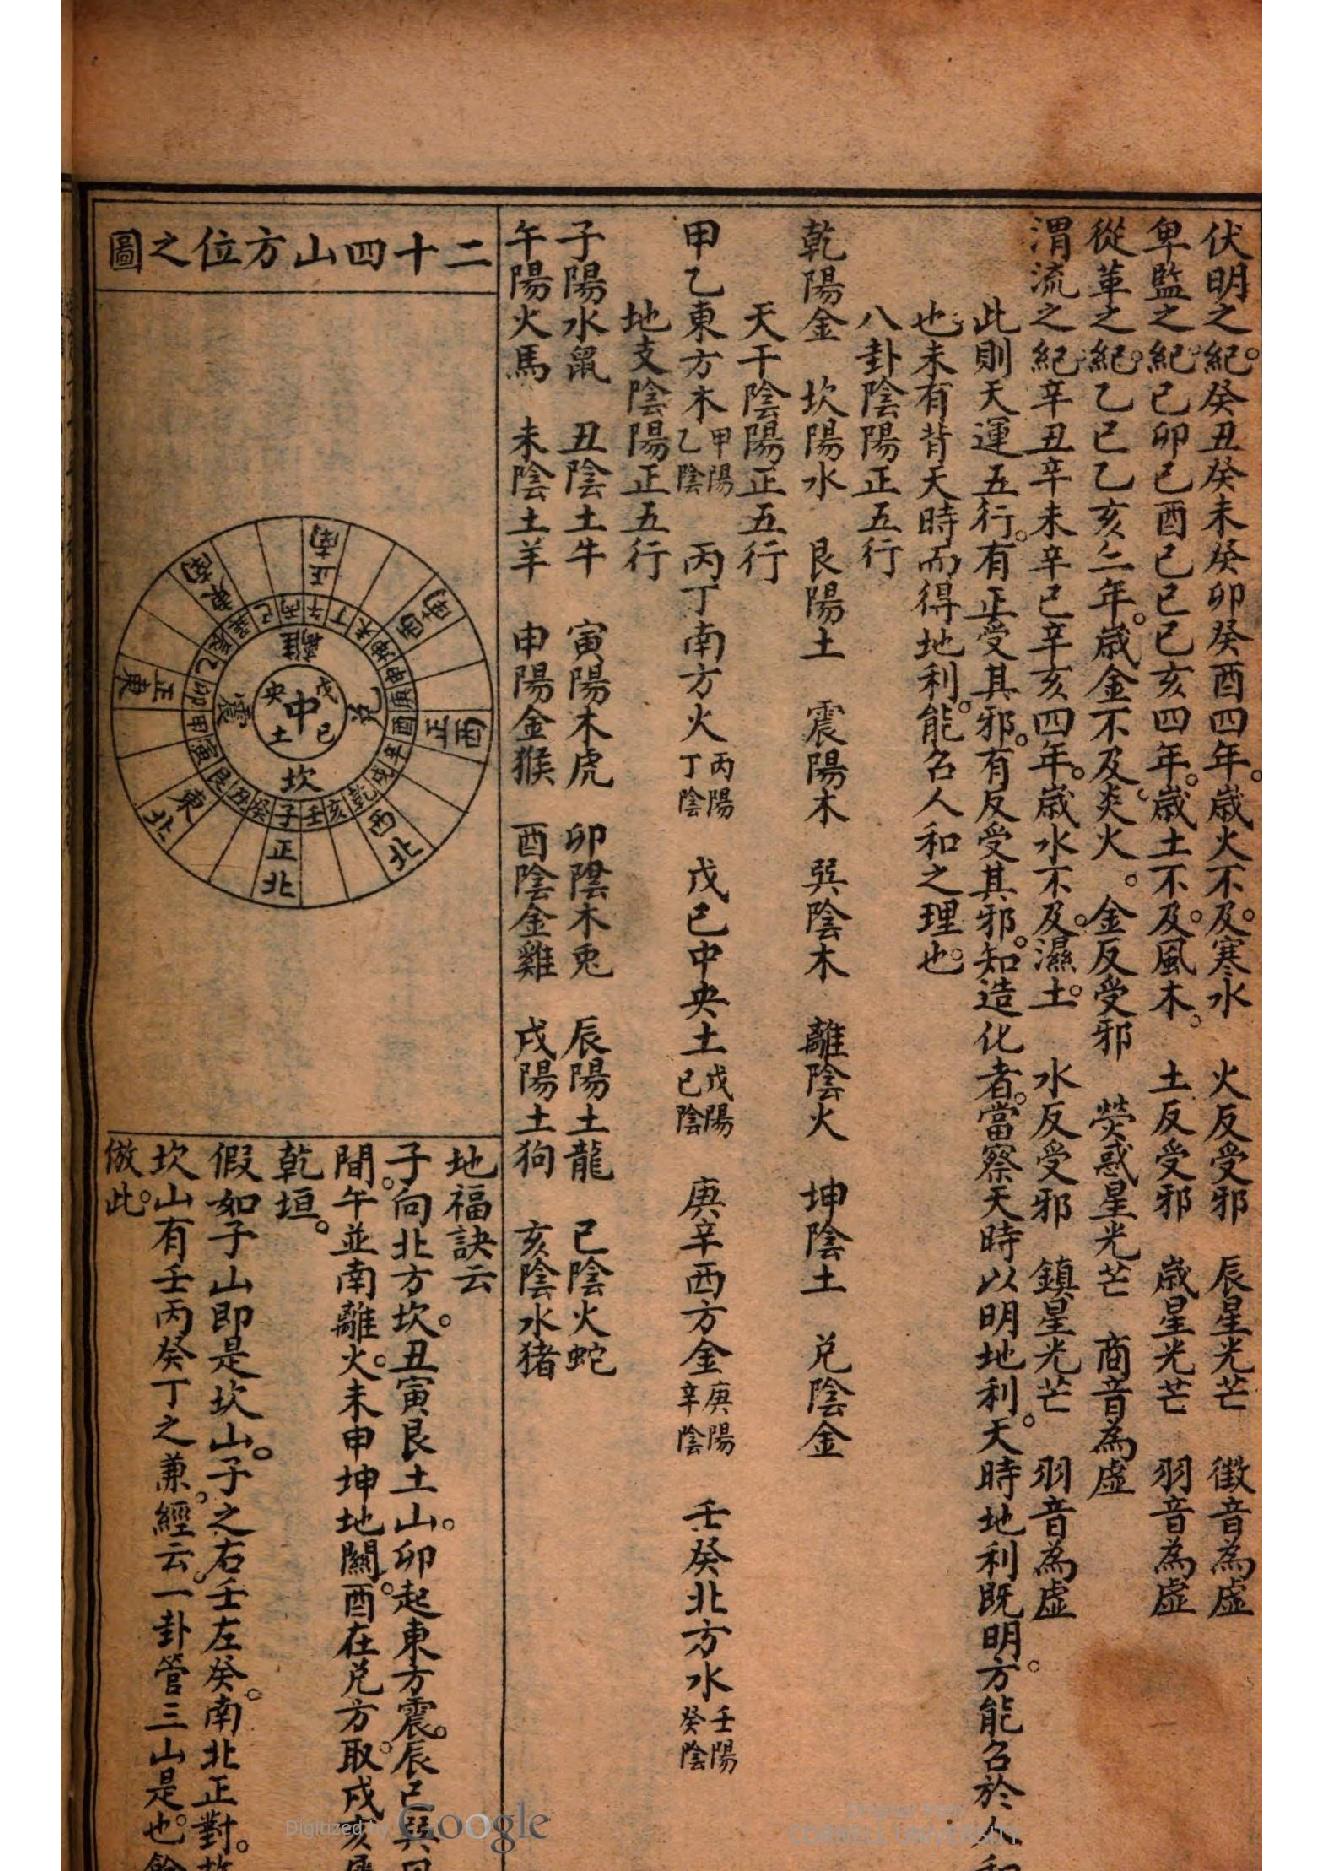 伏明之紀。癸丑癸未癸卯癸酉四年。歲火不及。寒水　火反受邪　辰星光芒　徵音為虛
卑監之紀。己卯己酉己巳己亥四年。歲土不及。風木。　土反受邪　歲星光芒　羽音為虛
從革之紀。乙巳乙亥二年。歲金不及。炎火。金反受邪　熒惑星光芒　商音為虛
涸流之紀。辛丑辛未辛巳辛亥四年。歲水不及。濕土。　水反受邪　鎮星光芒　羽音為虛
此則天運五行。有正受其邪。有反受其邪。知造化者。當察天時以明地利。天時地利既明。方能名於人和
也。未有背天時而得地利。能名人和之理也。
八卦陰陽正五行
乾陽金　坎陽水　艮陽土　震陽木　巽陰木　離陰火　坤陰土　兌陰金
天干陰陽正五行
甲乙東方木甲陽乙陰　丙丁南方火丙陽丁陰　戊己中央土戊陽己陰　庚辛西方金庚陽辛陰　壬癸北方水壬陽癸陰
地支陰陽正五行
子陽水鼠　丑陰土牛　寅陽木虎　卯陰木兔　辰陽土龍　巳陰火蛇
午陽火馬　未陰土羊　申陽金猴　酉陰金雞　戌陽土狗　亥陰水猪
二十四山方位之圖
正南
西南
正西
西北
正北
東北
正東
東南
午丁未坤申庚酉辛戌乾亥壬子癸丑艮寅甲卯乙辰巽巳丙
離
兌
坎
震
中央戊己土
地福訣云
子向北方坎。丑寅艮土山。卯起東方震。辰巳巽
間。午並南離火。未申坤地關。酉在兌方取。戌亥
乾垣。
假如子山即是坎山。子之右壬左癸。南北正對。
坎山有壬丙癸丁之兼。經云。一卦管三山是也。
倣此。
Digitized by Google
CORNELL UNIVERSITY